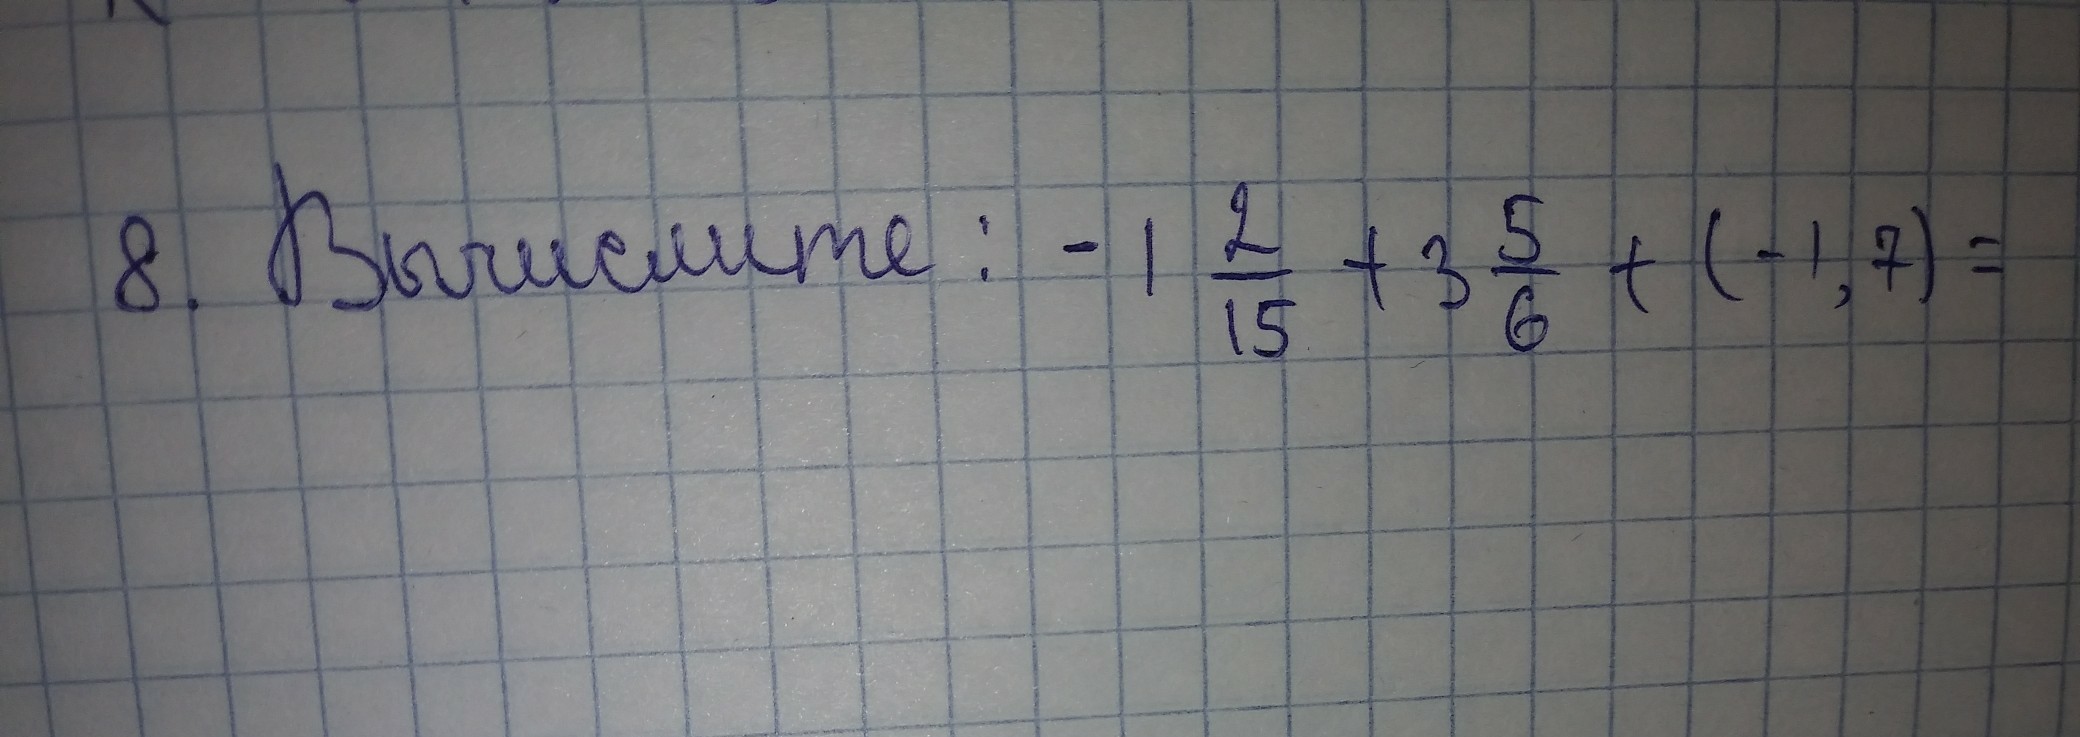 8. Вычислите: -1 2/15 + 3 5/6 + (-1,7) =